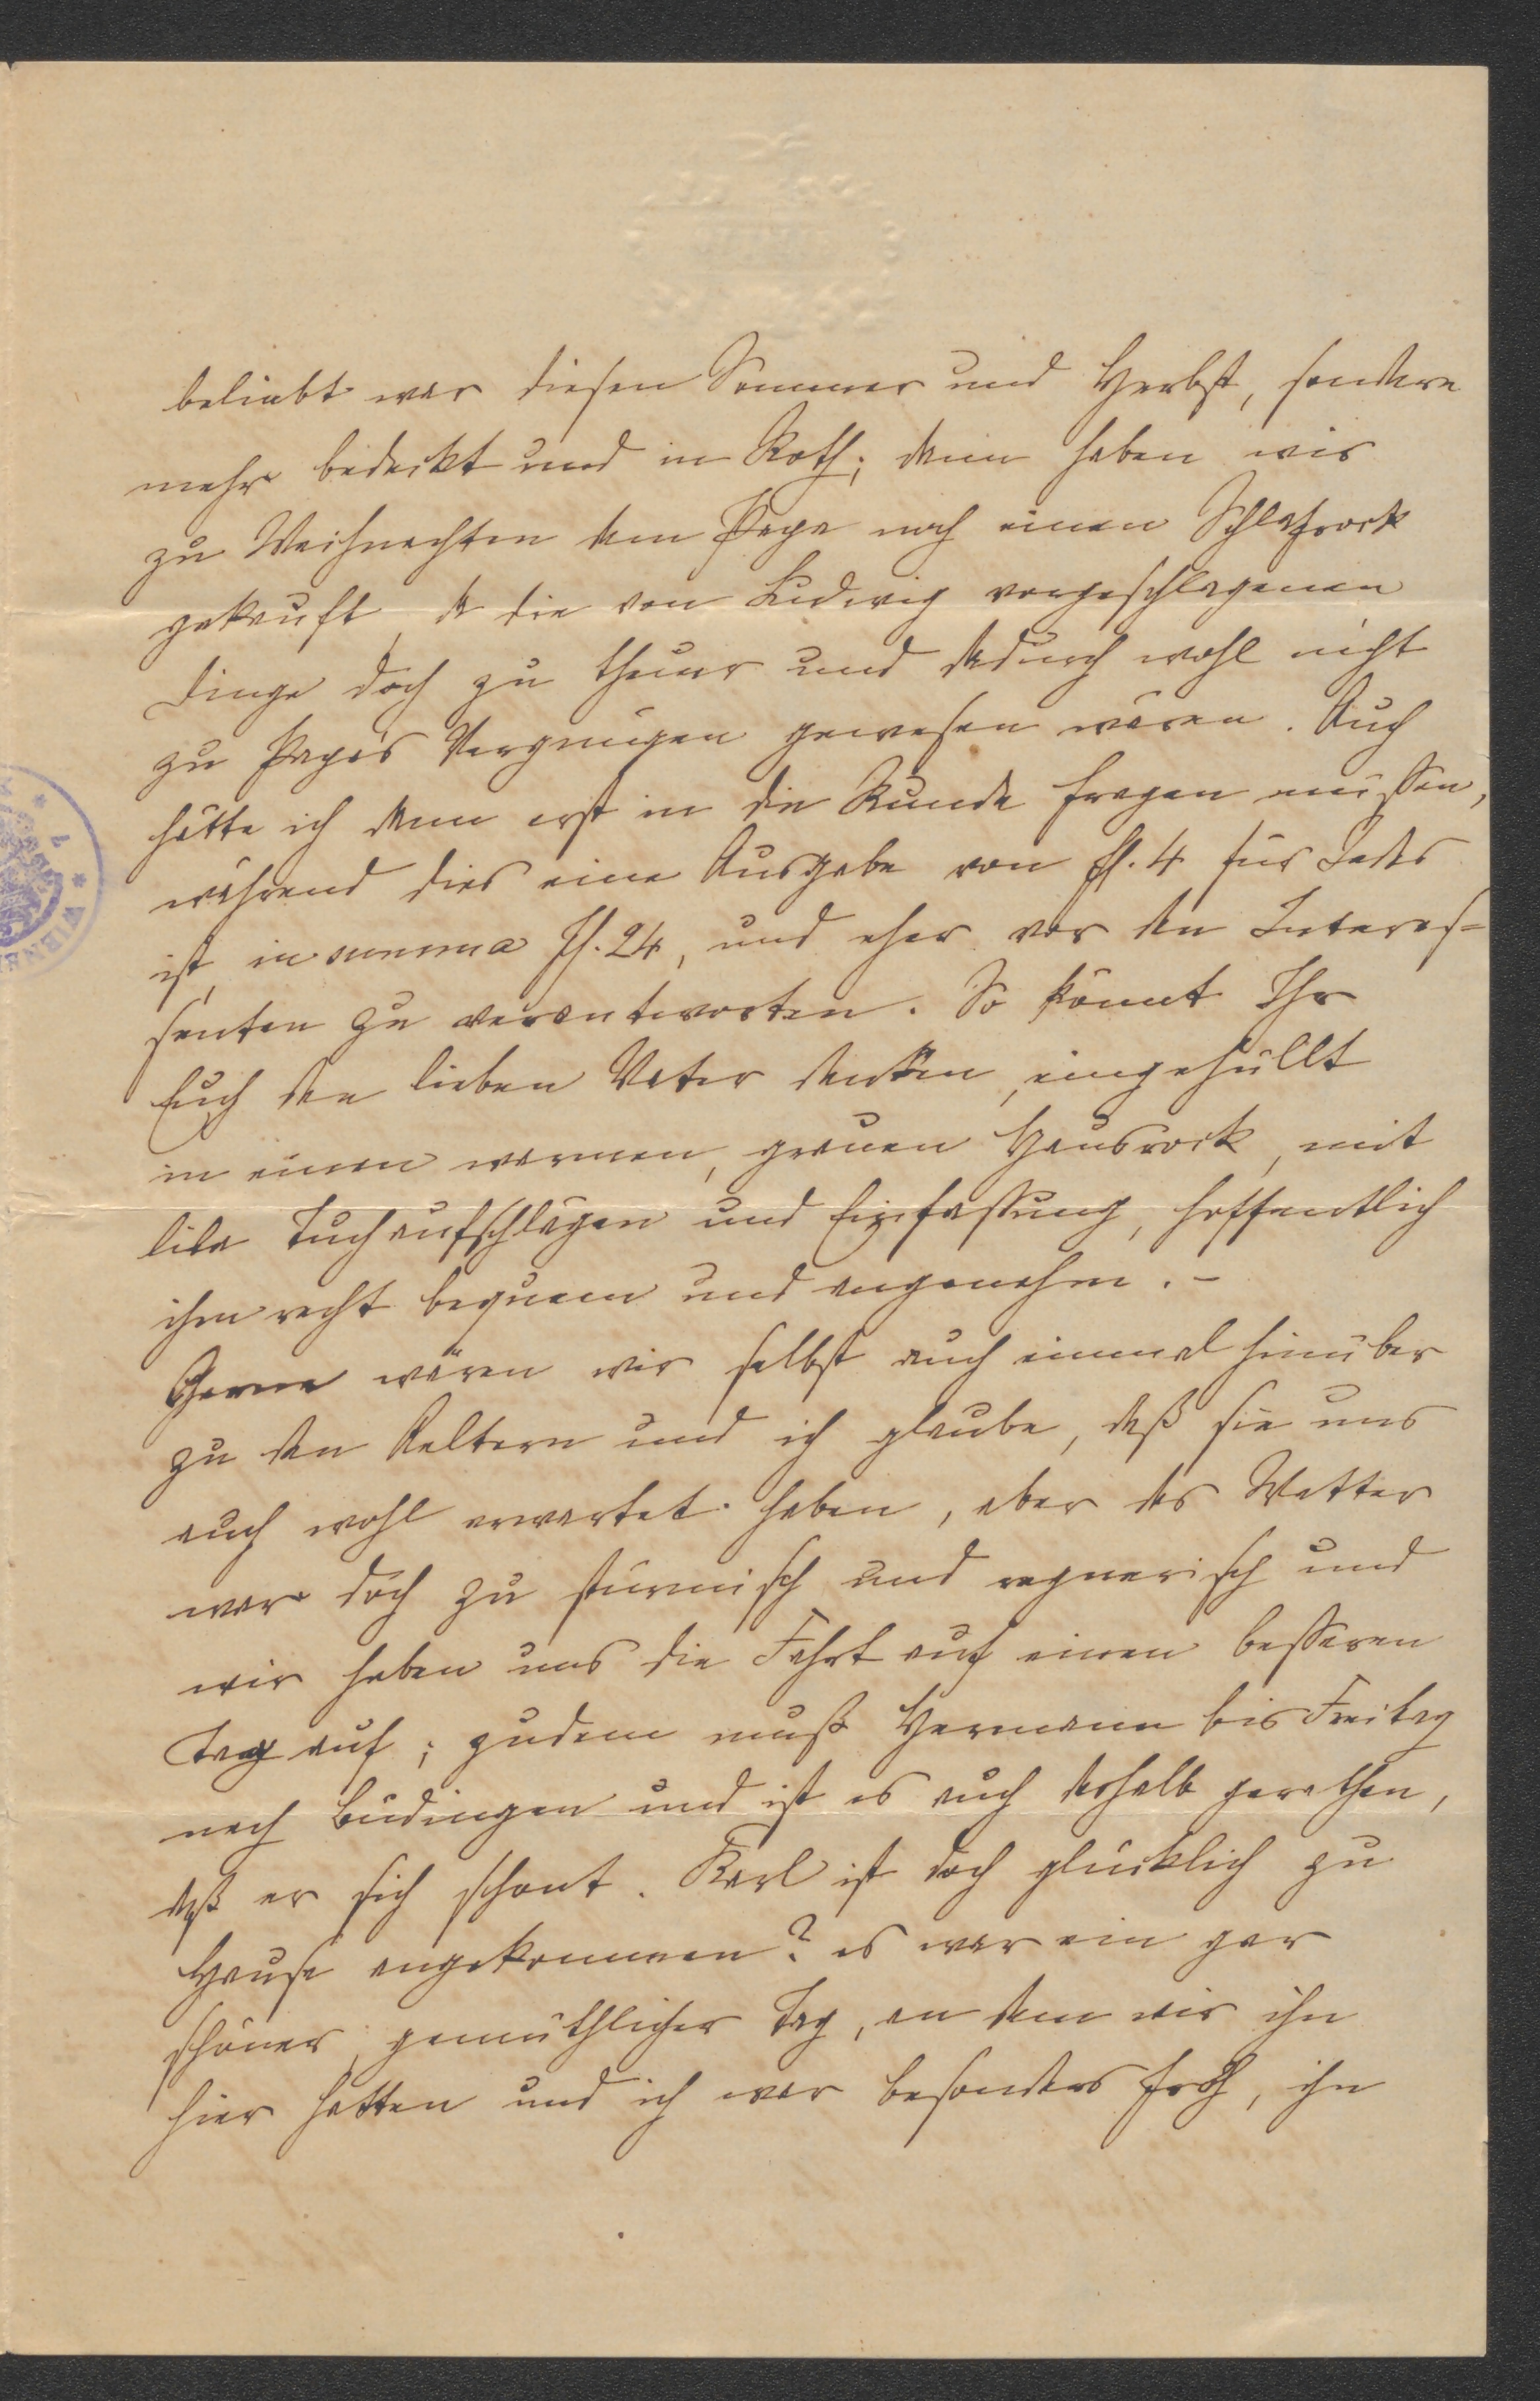 beliebt war diesen Sommer und Herbst, sondern
mehr bedeckt und in Roth; dann haben wir
zu Weihnachten dem Papa noch einen Schlafrock
gekauft, da die von Ludwig vorgeschlagenen
Dinge doch zu theuer und dadurch wohl nicht
zu Papa's Vergnügen gewesen wären. Auch
hätte ich dann erst in die Runde fragen müssen,
während dies eine Ausgabe von fl. 4 für Jedes
ist, in summa fl. 24, und eher vor den Interes=
senten zu verantworten. So könnt Ihr
Euch den lieben Vater denken, eingehüllt
in einen warmen, grauen Hausrock, mit
lila Tuchaufschlägen und Einfassung, hoffentlich
ihm recht bequem und angenehm. –
Gerne wären wir selbst auch einmal hinüber
zu den Aeltern und ich glaube, daß sie uns
auch wohl erwartet haben, aber das Wetter
war doch zu stürmisch und regnerisch und
wir haben uns die Fahrt auf einen besseren
Tag auf; zudem muß Hermann bis Freitag
nach Büdingen und ist es auch deshalb gerathen,
daß er sich schont. Karl ist doch glücklich zu
Hause angekommen? es war ein gar
schöner, gemüthlicher Tag, an dem wir ihn
hier hatten und ich war besonders froh, ihn